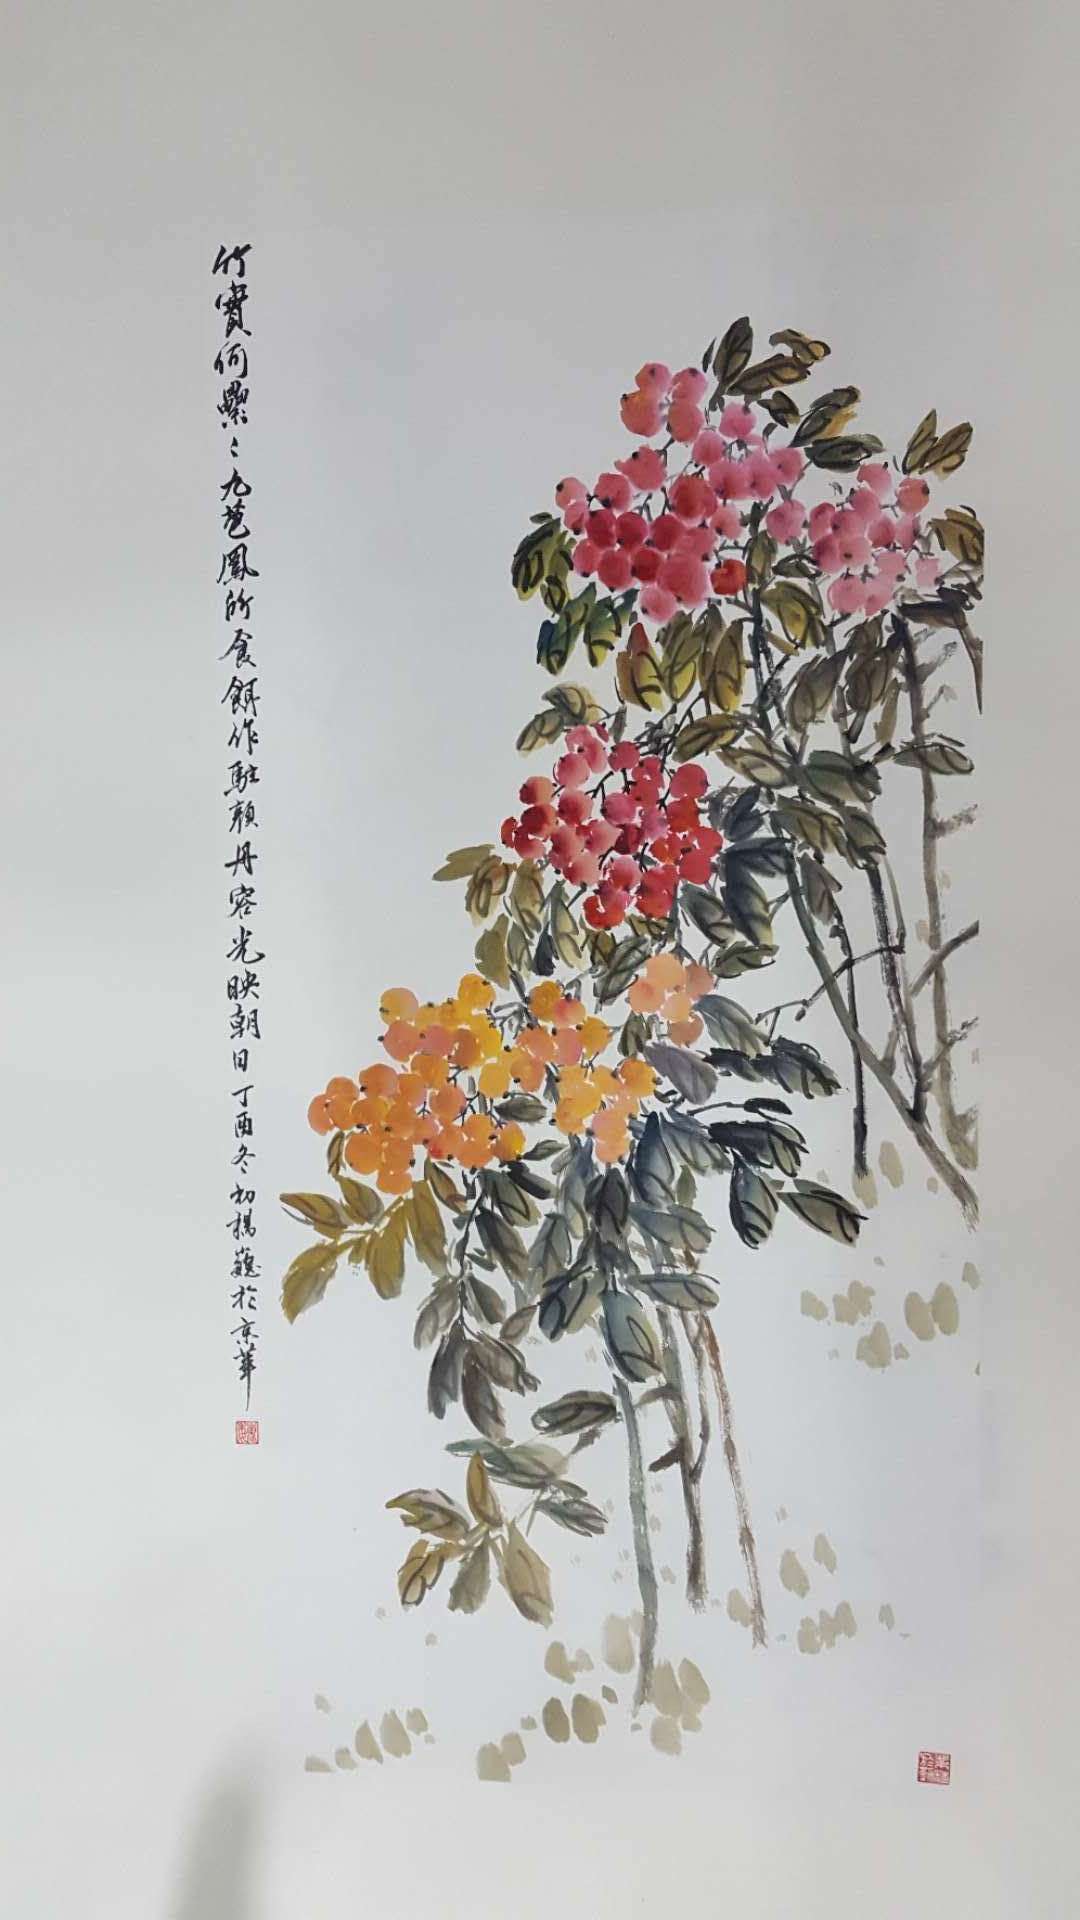 竹實何纍纍九苞鳳所食餌作駐顏丹容光映朝日丁酉冬初楊藝於京華